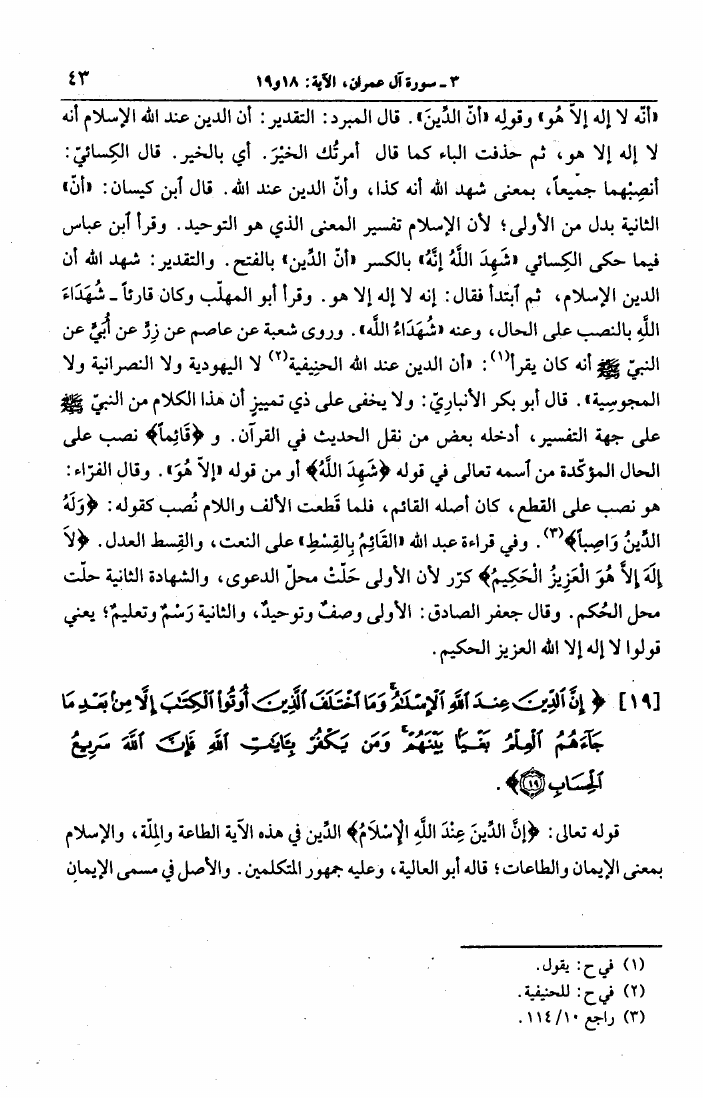 ٣ - سورة آل عمران، الآية: ١٨ و١٩ ٤٣
«أنّه لا إله إلاّ هُو» وقوله «أنّ الدِّينَ». قال المبرد: التقدير: أن الدين عند الله الإسلام أنه
لا إله إلا هو، ثم حذفت الباء كما قال أمرتُك الخيْرَ. أي بالخير. قال الكِسائيّ:
أنصِبْهما جميعاً، بمعنى شهد الله أنه كذا، وأنّ الدين عند الله. قال ٱبن كيسان: «أنّ»
الثانية بدل من الأولى؛ لأن الإسلام تفسير المعنى الذي هو التوحيد. وقرأ ٱبن عباس
فيما حكى الكِسائي «شَهِدَ اللَّهُ إنَّهُ» بالكسر «أنّ الدِّين» بالفتح. والتقدير: شهد الله أن
الدين الإسلام، ثم ٱبتدأ فقال: إنه لا إله إلا هو. وقرأ أبو المهلّب وكان قارئاً - شُهَدَاءَ
اللَّهِ بالنصب على الحال، وعنه «شُهَدَاءُ الله». وروى شعبة عن عاصم عن زِرٍّ عن أُبَيٍّ عن
النبيّ ﷺ أنه كان يقرأ(١): «أن الدين عند الله الحنِيفية(٢) لا اليهودية ولا النصرانية ولا
المجوسِية». قال أبو بكر الأنبارِيّ: ولا يخفى على ذي تمييزٍ أن هذا الكلام من النبيّ ﷺ
على جهة التفسير، أدخله بعض من نقل الحديث في القرآن. و ﴿قَائِماً﴾ نصب على
الحال المؤكّدة من ٱسمه تعالى في قوله ﴿شَهِدَ اللَّهُ﴾ أو من قوله «إلاّ هُوَ». وقال الفرّاء:
هو نصب على القطع، كان أصله القائم، فلما قَطعت الألف واللام نُصب كقوله: ﴿وَلَهُ
الدِّينُ وَاصِباً﴾(٣). وفي قراءة عبد الله «القَائِمُ بِالقِسْطِ» على النعت، والقِسط العدل. ﴿لاَ
إِلَهَ إلاَّ هُوَ الْعَزِيزُ الْحَكِيمُ﴾ كرّر لأن الأولى حَلّتْ محلّ الدعوى، والشهادة الثانية حلّت
محل الحُكم. وقال جعفر الصادق: الأولى وصفٌ وتوحيدٌ، والثانية رَسْمٌ وتعليمٌ؛ يعني
قولوا لا إله إلا الله العزيز الحكيم.
[١٩] ﴿إِنَّ ٱلدِّينَ عِندَ ٱللَّهِ ٱلْإِسْلَٰمُ وَمَا ٱخْتَلَفَ ٱلَّذِينَ أُوتُوا۟ ٱلْكِتَٰبَ إِلَّا مِنۢ بَعْدِ مَا
جَآءَهُمُ ٱلْعِلْمُ بَغْيًۢا بَيْنَهُمْ وَمَن يَكْفُرْ بِـَٔايَٰتِ ٱللَّهِ فَإِنَّ ٱللَّهَ سَرِيعُ
ٱلْحِسَابِ ١٩﴾.
قوله تعالى: ﴿إنَّ الدِّينَ عِنْدَ اللَّهِ الْإِسْلَامُ﴾ الدِّين في هذه الآية الطاعة والمِلّة، والإسلام
بمعنى الإيمان والطاعات؛ قاله أبو العالية، وعليه جمهور المتكلمين. والأصل في مسمى الإيمان
(١) في ح: يقول.
(٢) في ح: للحنيفية.
(٣) راجع ١١٤/١٠.